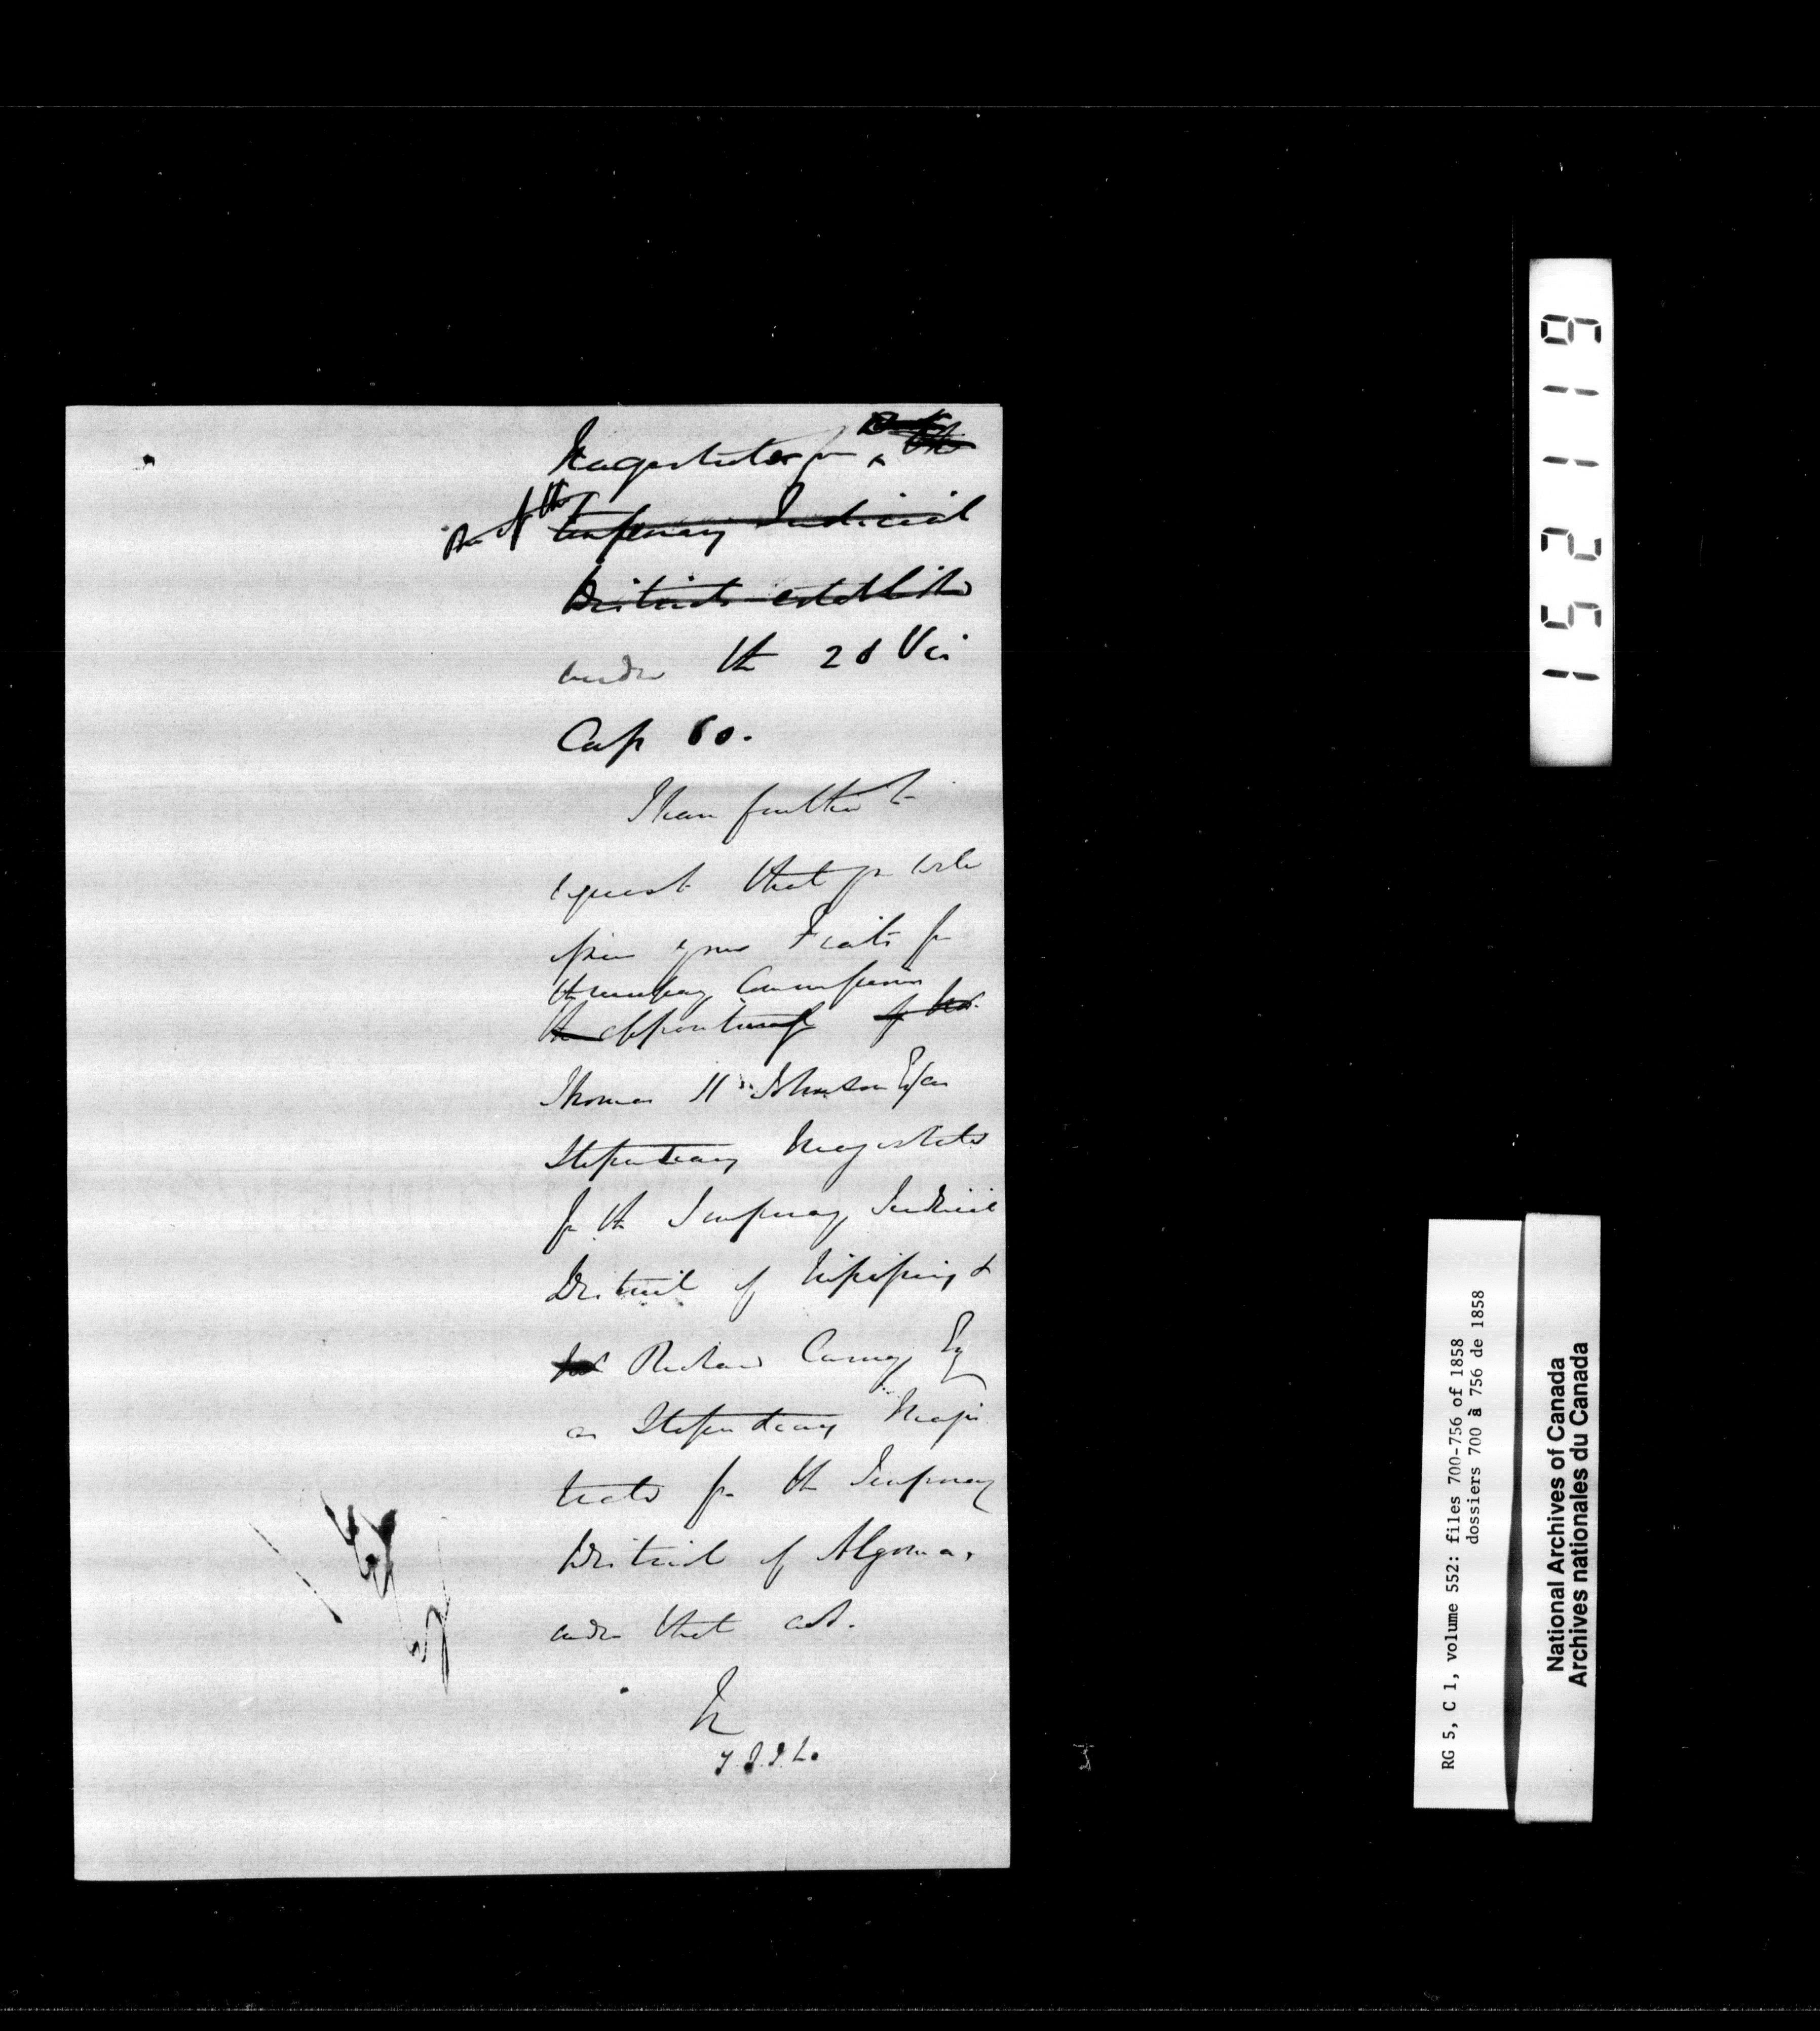 Magistrates for
temporary Judicial
Districts establish
under the 20 Vic
Cap 60.
I have further to
request that you will
your Fiats for
the necessary Commissions
the appointing of
Thomas Johnson Esq as
Stipendiary Magistrate
for the Temporary Judicial
District of Nipissing &
Richard Carney Esq
as Stipendiary Magis
trate for the Temporary
District of Algoma,
under that act.
RG 5, C 1, volume 552: files 700-756 of 1858
dossiers 700 à 756 de 1858
National Archives of Canada
Archives nationales du Canada
152119